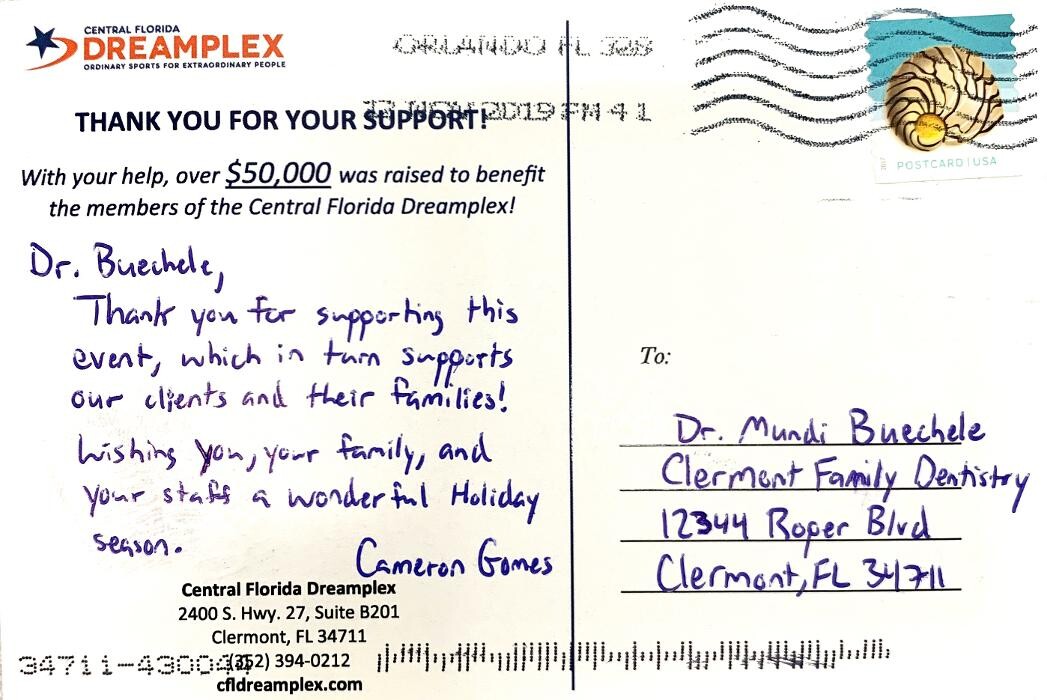 CENTRAL FLORIDA
DREAMPLEX
ORDINARY SPORTS FOR EXTRAORDINARY PEOPLE
ORLANDO FL 328
NOV 2019 PM 4 1
THANK YOU FOR YOUR SUPPORT!
With your help, over $50,000 was raised to benefit
the members of the Central Florida Dreamplex!
Dr. Buechele,
Thank you for supporting this
event, which in turn supports
our clients and their families!
Wishing you, your family, and
your staff a wonderful Holiday
season.
Cameron Gomes
Central Florida Dreamplex
2400 S. Hwy. 27, Suite B201
Clermont, FL 34711
(352) 394-0212
cfldreamplex.com
34711-4300
2017
POSTCARD | USA
To:
Dr. Mundi Buechele
Clermont Family Dentistry
12344 Roper Blvd
Clermont, FL 34711